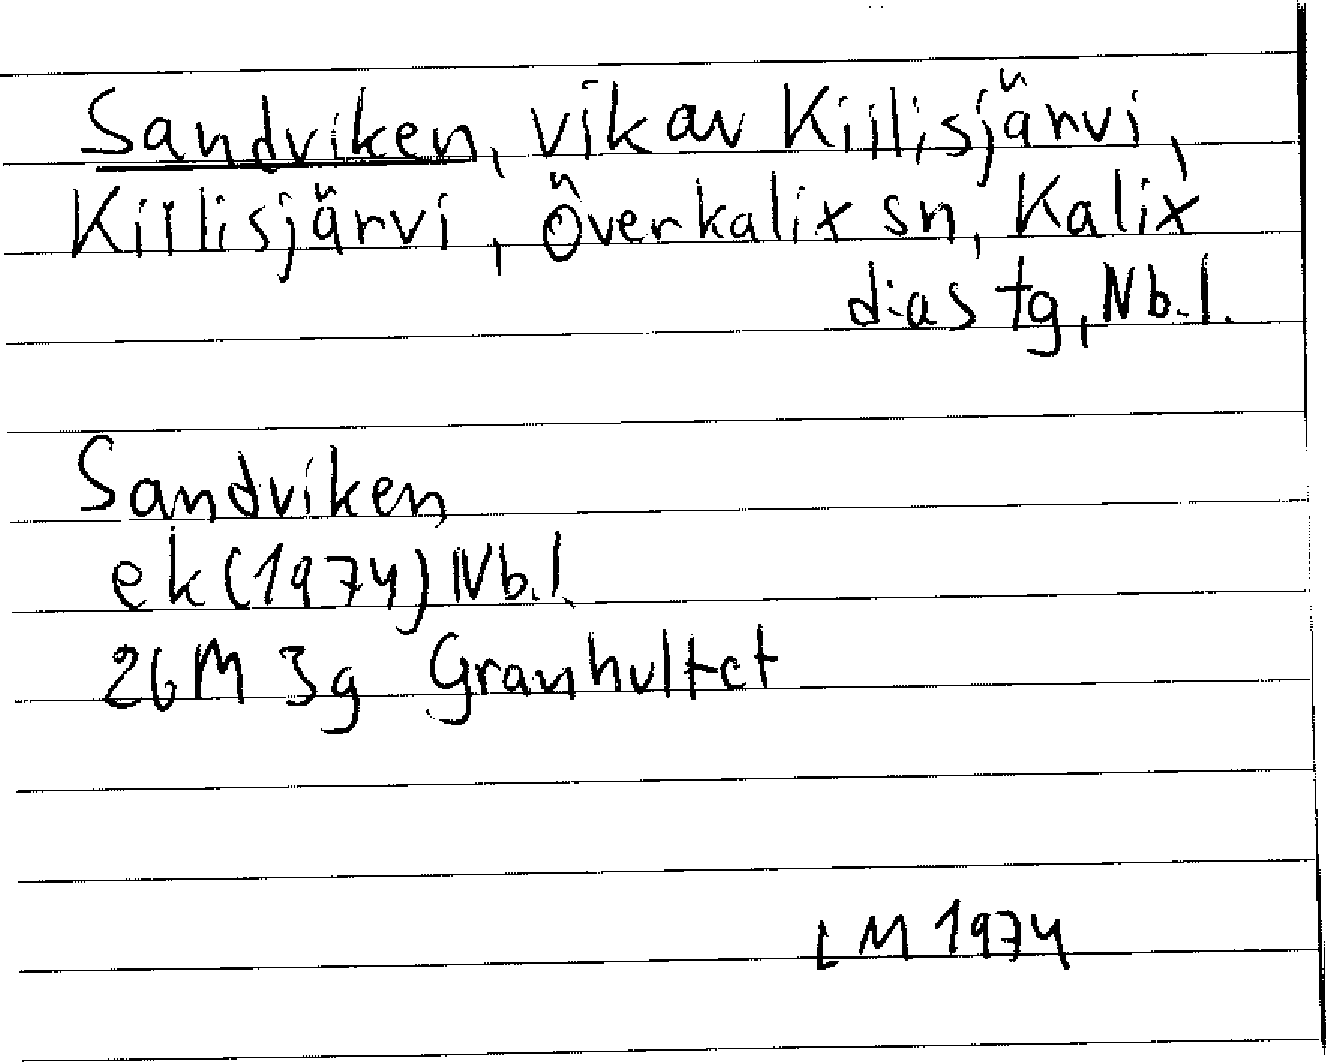 Sandviken, vik av Kiilisjärvi,
Kiilisjärvi, Överkalix sn, Kalix
dias tg, Nb.l.
Sandviken
ek (1974) Nb.l.
26M 3g Granhultet
LM 1974